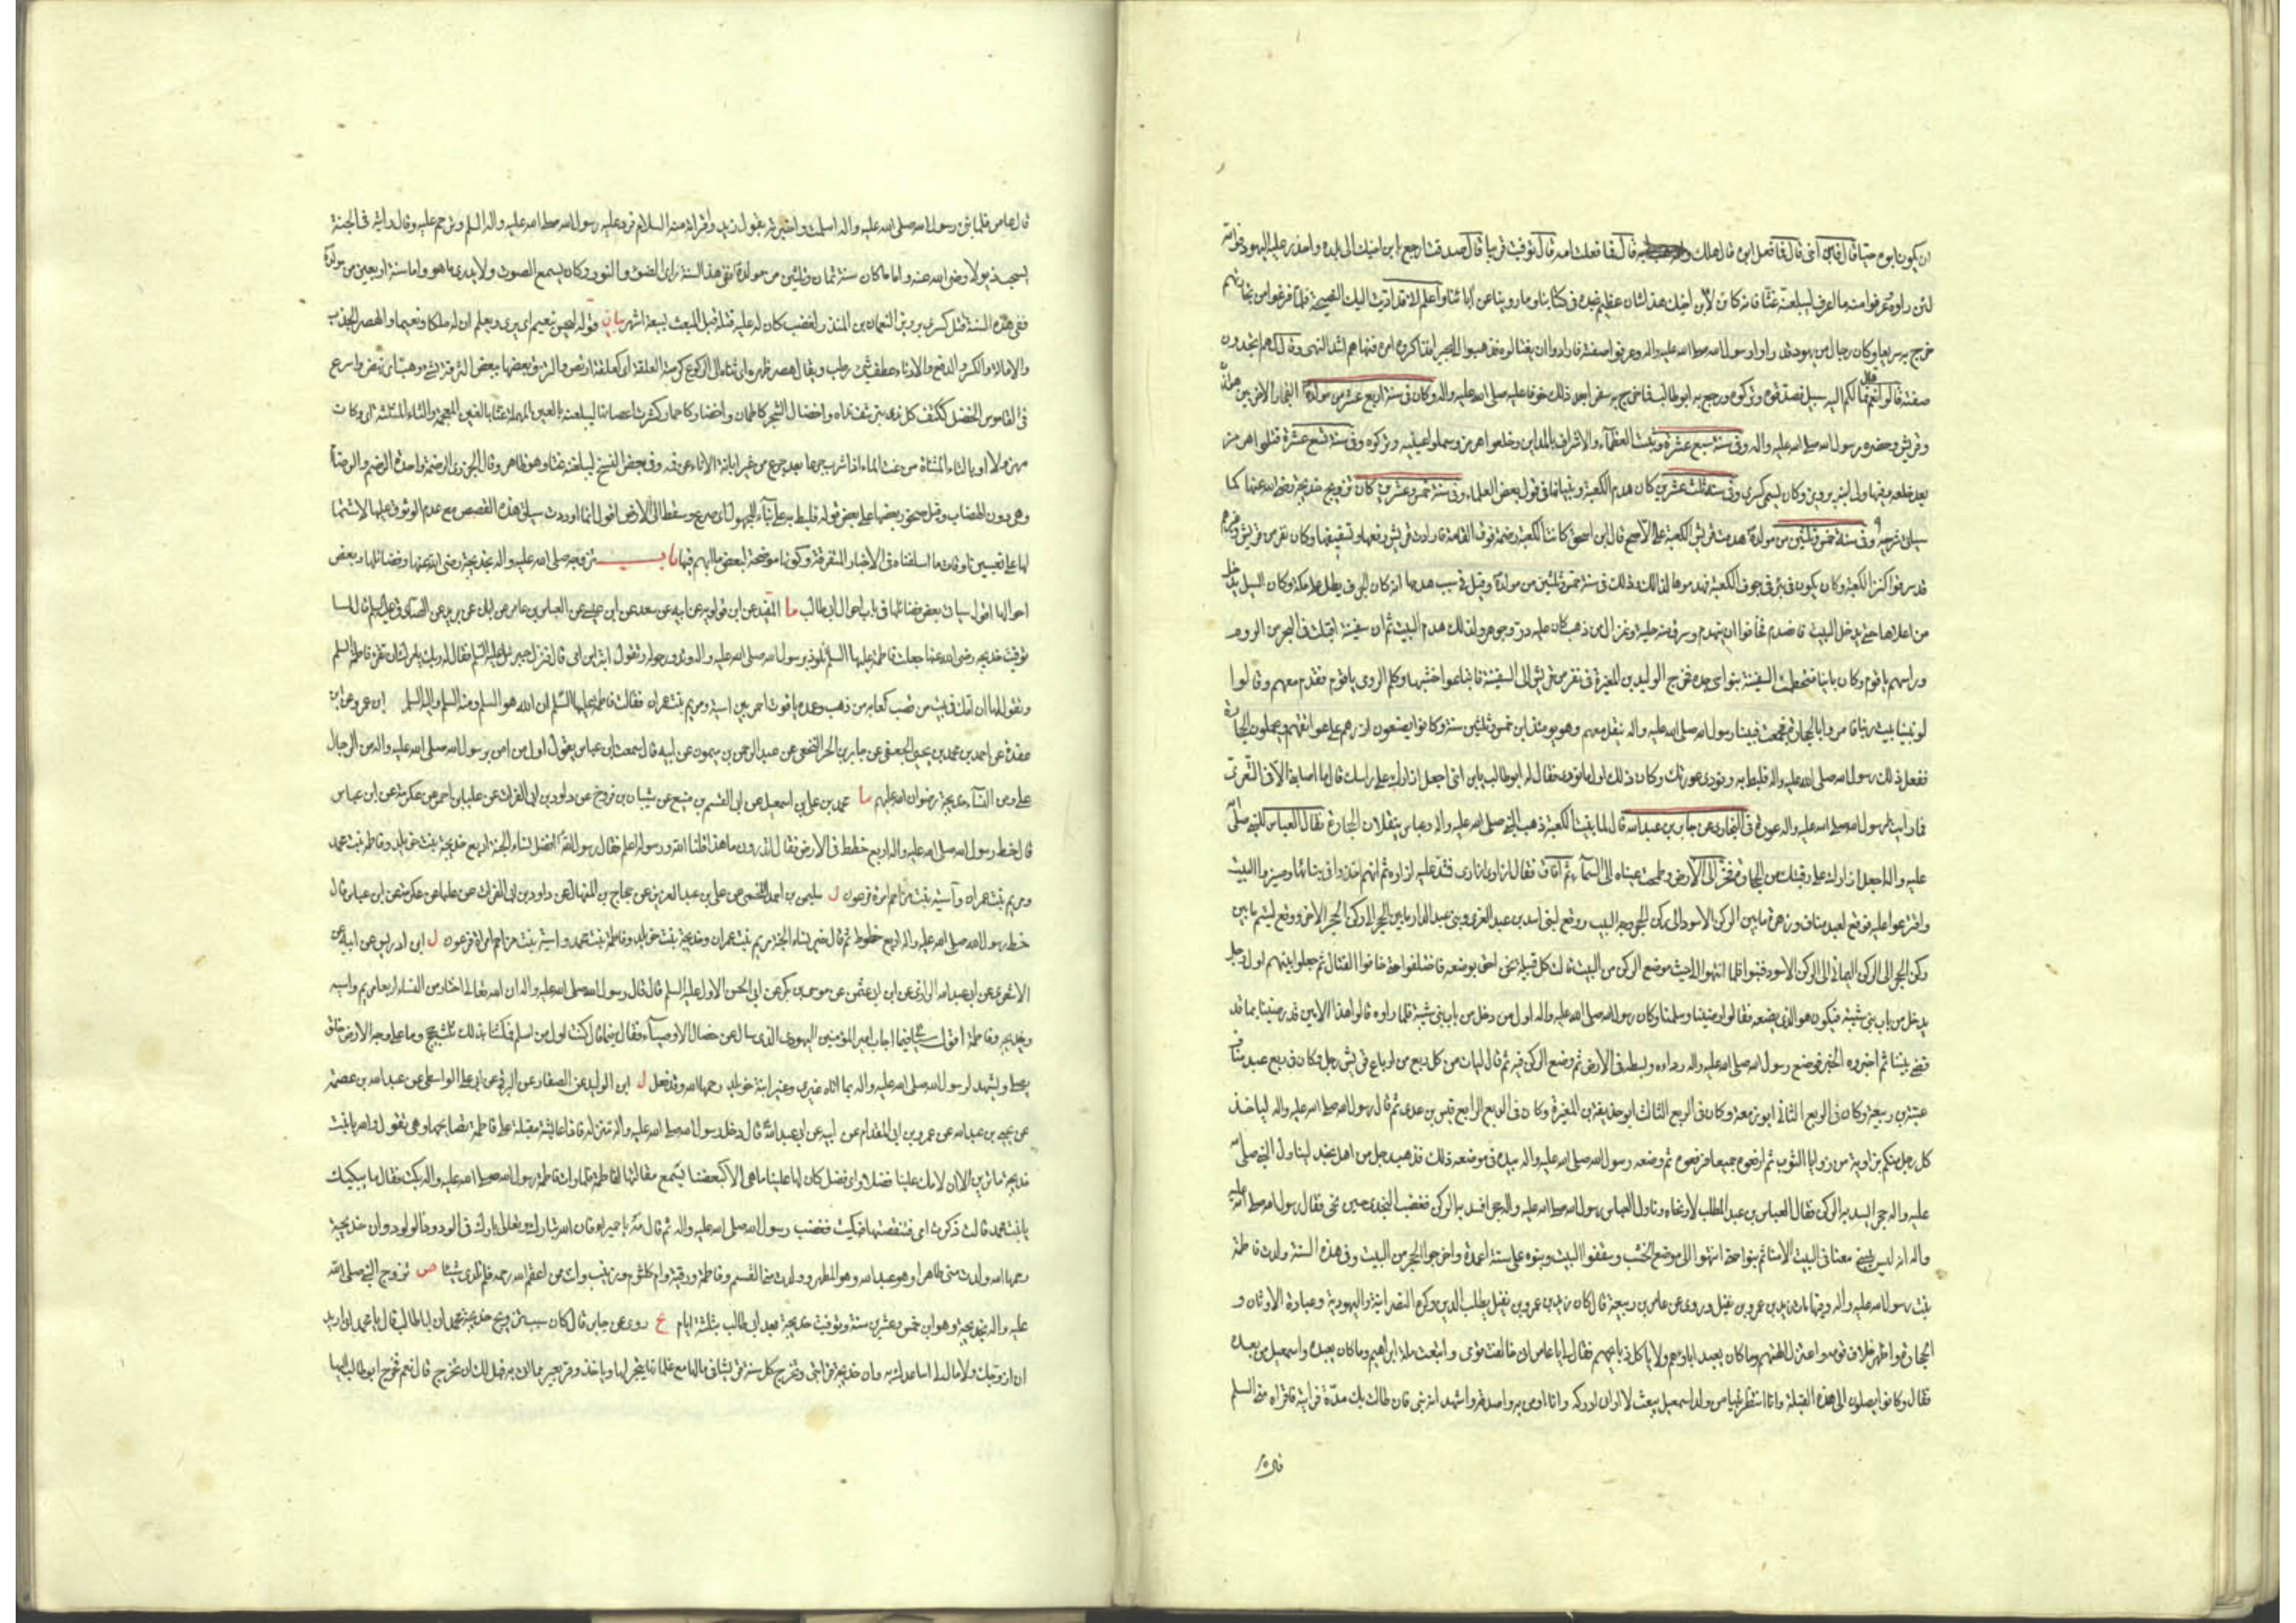 ان يكون ابوه حيا قال فانه ابن اخي قال فما فعل ابوه قال هلك قال فما فعلت امه قال توفيت قريبا قال صدقت ارجع بابن اخيك الى بلده واحذر عليه اليهود فوالله
لئن راوه وعرفوا منه ما اعرف ليبلغنه عنتا فانه كائن لابن اخيك هذا شان عظيم نجده في كتابنا وما روينا عن آبائنا واعلم اني قد اديت اليك النصيحة فلما فرغوا من تجاراتهم
خرج به سريعا وكان رجال من يهود قد راوا رسول الله صلى الله عليه واله وعرفوا صفته فارادوا ان يغتالوه فذهبوا الى بحيرا فذاكروه امره فنهاهم اشد النهى وقال لهم اتجدون
صفته قالوا نعم قال فما لكم اليه سبيل فصدقوه وتركوه ورجع به ابو طالب فما خرج به سفرا بعد ذلك خوفا عليه صلى الله عليه واله وكان في سنة اربع عشرة من مولده الفجار الاخر بين هوازن
وقريش وحضره رسول الله صلى الله عليه واله وفي سنة سبع عشرة وثبت العظمآء والاشراف بالمداين وخلعوا هرمز وسملوا عينيه وتركوه وفي سنة تسع عشرة قتلوا هرمز
بعد خلعه وفيها ولي ابنه برويز وكان يسمى كسرى وفي سنة ثلث وعشرين كان هدم الكعبة وبنيانها في قول بعض العلماء وفي سنة خمس وعشرين كان تزويج خديجة رضي الله عنها كما
سياتي شرحه وفي سنة خمس وثلثين من مولده هدمت قريش الكعبة على الاصح قال ابن اسحق كانت الكعبة رضمة فوق القامة فارادت قريش رفعها وتسقيفها وكان نفر من قريش وغيرهم
قد سرقوا كنز الكعبة وكان يكون في بئر في جوف الكعبة فهدموها لذلك وذلك في سنة خمس وثلثين من مولده وقيل في سبب هدمها انه كان الجرف يطل على مكة وكان السيل يدخل
من اعلاها حتى يدخل البيت فانصدع فخافوا ان ينهدم وسرق منه حلية وغزال من ذهب كان عليه در وجوهر ولذلك هدم البيت ثم ان سفينة اقبلت في البحر من الروم
وراسهم باقوم وكان بانيا فتحطمت السفينة بنواحى جده فخرج الوليد بن المغيرة في نفر من قريش الى السفينة فابتاعوا خشبها وكلم الرومى باقوم فقدم معهم وقالوا
لو بنينا بيت ربنا فامروا بالحجارة فجمعت فبينا رسول الله صلى الله عليه واله ينقل معهم وهو يومئذ ابن خمس وثلثين سنة وكانوا يضعون ازرهم على عواتقهم ويحملون الحجارة
ففعل ذلك رسول الله صلى الله عليه واله فلبط به ونودى عورتك وكان ذلك اول ما نودى فقال له ابو طالب يا ابن اخي اجعل ازارك على راسك قال ما اصابني ما اصابني الا في التعرى
فما رايت لرسول الله صلى الله عليه واله عورة في البخارى عن جابر بن عبد الله قال لما بنيت الكعبة ذهب النبي صلى الله عليه واله وعباس ينقلان الحجارة فقال العباس للنبي صلى الله
عليه واله اجعل ازارك على رقبتك من الحجارة فخر الى الارض وطمحت عيناه الى السمآء ثم افاق فقال ازارى ازارى فشد عليه ازاره ثم انهم اخذوا في بنائها وميزوا البيت
واقترعوا عليه فوقع لعبد مناف وزهرة ما بين الركن الاسود الى ركن الحجر وجه البيت ووقع لبني اسد بن عبد العزى وبني عبد الدار ما بين الحجر الى ركن الحجر الاخر ووقع لتيم ما بين
ركن الحجر الى الركن اليماني الى الركن الاسود فبنوا فلما انتهوا الى حيث موضع الركن من البيت قالت كل قبيلة نحن احق بوضعه فاختلفوا حتى خافوا القتال ثم جعلوا بينهم اول رجل
يدخل من باب بني شيبة فيكون هو الذي يضعه فقالوا رضينا وسلمنا وكان رسول الله صلى الله عليه واله اول من دخل من باب بني شيبة فلما راوه قالوا هذا الامين قد رضينا بما قد
قضى بيننا ثم اخبروه الخبر فوضع رسول الله صلى الله عليه واله رداءه وبسطه في الارض ثم وضع الركن فيه ثم قال ليات من كل ربع من ارباع قريش رجل وكان في ربع عبد مناف
عتبة بن ربيعة وكان في الربع الثاني ابو زمعة وكان في الربع الثالث ابو حذيفة بن المغيرة وكان في الربع الرابع قيس بن عدى ثم قال رسول الله صلى الله عليه واله لياخذ
كل رجل منكم بزاوية من زوايا الثوب ثم ارفعوه جميعا فرفعوه ثم وضعه رسول الله صلى الله عليه واله بيده في موضعه ذلك فذهب رجل من اهل نجد ليناول النبي صلى الله
عليه واله حجرا ليسد به الركن فقال العباس بن عبد المطلب لا ونحاه وناول العباس رسول الله صلى الله عليه واله حجرا فسد به الركن فغضب النجدى حين نحى فقال رسول الله صلى الله عليه
واله انه ليس يبنى معنا في البيت الا منا ثم بنوا حتى انتهوا الى موضع الخشب وسقفوا البيت وبنوه على ستة اعمدة واخرجوا الحجر من البيت وفي هذه السنة ولدت فاطمة
بنت رسول الله عليه واله وفيها مات زيد بن عمرو بن نفيل وروى عن عامر بن ربيعة قال كان زيد بن عمرو بن نفيل يطلب الدين وكره النصرانية واليهودية وعبادة الاوثان و
الحجارة واظهر خلاف قومه واعتزل الهتهم وما كان يعبد اباؤهم ولا ياكل ذبايحهم فقال لي يا عامر اني خالفت قومي واتبعت ملة ابراهيم وما كان يعبده واسمعيل من بعده
فقال وكانوا يصلون الى هذه القبلة وانا انتظر نبيا من ولد اسمعيل يبعث لا اراني ادركه وانا اومن به واصدقه واشهد انه نبي فان طالت بك مدة فرايته فاقراه مني السلم
قال عامر فلما نبئ رسول الله صلى الله عليه واله اسلمت واخبرته بقول زيد واقراته منه السلام فرد عليه رسول الله صلى الله عليه واله السلم وترحم عليه وقال رايته في الجنة
يسحب ذيولا رضى الله عنه واما ما كان سنة ثمان وثلثين من مولده ففي هذا السنة راى الضوء والنور وكان يسمع الصوت ولا يدرى ما هو واما سنة اربعين من مولده
ففي هذه السنة قتل كسرى برويز النعمان بن المنذر لغضب كان له عليه قتله قبل المبعث بسبعة اشهر بيان قوله ليحس نعيم اى يرى ويعلم ان له ملكا ونعيما والهصر الجذب
والامالة والكسر والدفع والادناء وعطف شئ رطب ويقال هصر ظهره اى ثناه الى الركوع
في القاموس الخضل ككتف كل شئ ند يترشف نداه واخضال الشجر كاطمان واخضار كاحمار كثرت اغصانها ليبلغنه بالعين المهملة عنتا بالغين المعجمة والثاء المثلثة
مهزولا او بالتاء المثناة من غت الماء اذا شرب جرعا بعد جرع من غير ابانة الاناء عن فيه وفي بعض النسخ ليبلغنه عنتا وهو ظاهر وقال الجزرى الرضمة واحدة الرضم والرضام
وهي دون الهضاب وقيل صخور بعضها على بعض قوله فلبط به على بناء المجهول اى صرع وسقط الى الارض اقول انما اوردت سياق هذه القصص مع عدم الوثوق عليها لاشتمالها
لها على تعيين اوقات ما اسلفناه في الاخبار المتفرقة وكونها موضحة لبعض ما ابهم فيها باب تزوجه صلى الله عليه واله بخديجة رضى الله عنها وفضائلها وبعض
احوالها اقول سياتي بعض فضائلها في باب احوال ابي طالب ما المفيد عن ابن قولويه عن ابيه عن سعد عن ابن عيسى عن العباس بن عامر عن ابان عن بريد عن الصادق عليه السلم قال لما
توفيت خديجه رضى الله عنها جعلت فاطمة عليها السلم تلوذ برسول الله صلى الله عليه واله وتدور حوله وتقول ابه اين امى قال فنزل جبرئيل عليه السلم فقال له ربك يامرك ان تقرئ فاطمة السلم
وتقول لها ان امك في بيت من قصب كعابه من ذهب وعمده ياقوت احمر بين اسية ومريم بنت عمران فقالت فاطمة عليها السلم ان الله هو السلم ومنه السلم واليه السلم ابو عمرو عن ابن
عقدة عن احمد بن محمد بن يحيى الجعفى عن جابر بن الحر النخعى عن عبد الرحمن بن ميمون عن ابيه قال سمعت ابن عباس يقول اول من امن برسول الله صلى الله عليه واله من الرجال
على ومن النسآء خديجة رضوان الله عليهم ما محمد بن علي بن اسمعيل عن ابي القسم بن منيع عن شيبان بن فروخ عن داود بن ابي الفرات عن علباء بن احمر عن عكرمة عن ابن عباس
قال خط رسول الله صلى الله عليه واله اربع خطط في الارض فقال اتدرون ما هذا قلنا الله ورسوله اعلم فقال رسول الله افضل نساء الجنة اربع خديجة بنت خويلد وفاطمة بنت محمد
ومريم بنت عمران وآسية بنت مزاحم امرأة فرعون ل سليمن بن احمد اللخمى عن علي بن عبد العزيز عن حجاج بن المنهال عن داود بن ابي الفرات عن علباء عن عكرمة عن ابن عباس قال
خط رسول الله صلى الله عليه واله اربع خطوط ثم قال خير نساء الجنة مريم بنت عمران وخديجة بنت خويلد وفاطمة بنت محمد واسية بنت مزاحم امراة فرعون ل ابن ادريس عن ابيه عن
الاشعرى عن ابي عبد الله الرازى عن ابن ابي عثمن عن موسى بن بكر عن ابي الحسن الاول عليه السلم قال قال رسول الله صلى الله عليه واله ان الله تعالى اختار من النساء اربعا مريم واسية
وخديجة وفاطمة اقول سياتي فيما اجاب امير المؤمنين اليهودى الذى سال عن خصال الاوصيآء فقال فيما قال كنت اول من اسلم فمكثنا بذلك ثلث حجج وما على وجه الارض خلق
يصلي ويشهد لرسول الله صلى الله عليه واله بما اتاه غيرى وغير ابنة خويلد رحمها الله وقد فعل ل ابن الوليد عن الصفار عن البرقي عن ابي علي الواسطى عن عبد الله بن عصمة
عن يحيى بن عبد الله عن عمرو بن ابي المقدام عن ابيه عن ابي عبد الله قال دخل رسول الله صلى الله عليه واله منزله فاذا عايشة مقبلة على فاطمة تصايحها وهي تقول والله يا بنت
خديجة ما ترين الا ان لامك علينا فضلا واى فضل كان لها علينا ما هي الا كبعضنا فسمع مقالتها لفاطمة فلما رات فاطمة رسول الله صلى الله عليه واله بكت فقال ما يبكيك
يا بنت محمد قالت ذكرت امى فتنقصتها فبكيت فغضب رسول الله صلى الله عليه واله ثم قال مه يا حميرا فان الله تبارك وتعالى بارك في الودود الولود وان خديجة
رحمها الله ولدت منى طاهرا وهو عبد الله وهو المطهر وولدت منى القسم وفاطمة ورقية وام كلثوم وزينب وانت ممن اعقم الله رحمه فلم تلدى شيئا ص تزوج النبي صلى الله
عليه واله بخديجة وهو ابن خمس وعشرين سنة وتوفيت خديجة بعد ابي طالب بثلثة ايام يج روى عن جابر قال كان سبب تزويج خديجة محمد ان ابا طالب قال يا محمد انى اريد
ان ازوجك ولا مال لى اساعدك به وان خديجة قرابتنا وتخرج كل سنة قريشا في مالها مع غلمانها يتجر لها وياخذ وقر بعير مما اتى به فهل لك ان تخرج قال نعم فخرج ابو طالب اليها